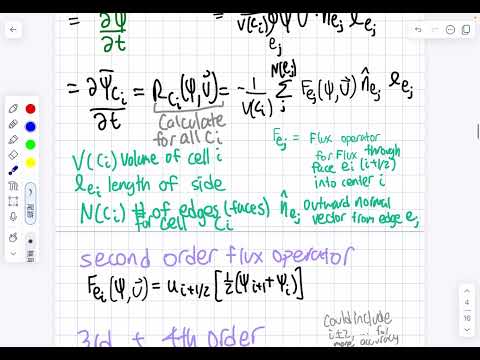 = ∂ψ/∂t = 1/V(Cᵢ) ψ U · n̂eⱼ ℓeⱼ
eⱼ
= ∂ψ̄Cᵢ/∂t = RCᵢ(ψ,U⃗) = -1/V(Cᵢ) Σⱼ^N(eⱼ) Feⱼ(ψ,U⃗) n̂eⱼ ℓeⱼ
Calculate
for all Cᵢ
Feⱼ = Flux operator
for Flux through
face eᵢ (i+1/2)
into center i
V(Cᵢ) Volume of cell i
ℓeᵢ length of side
N(Cᵢ) # of edges (faces)
for cell Cᵢ
n̂eⱼ Outward normal
vector from edge eⱼ
second order flux operator
Feᵢ(ψ,U⃗) = uᵢ₊₁/₂ [½(ψᵢ₊₁+ψᵢ)]
3rd + 4th order
Could include
i±2, ... for
more accuracy
4
16